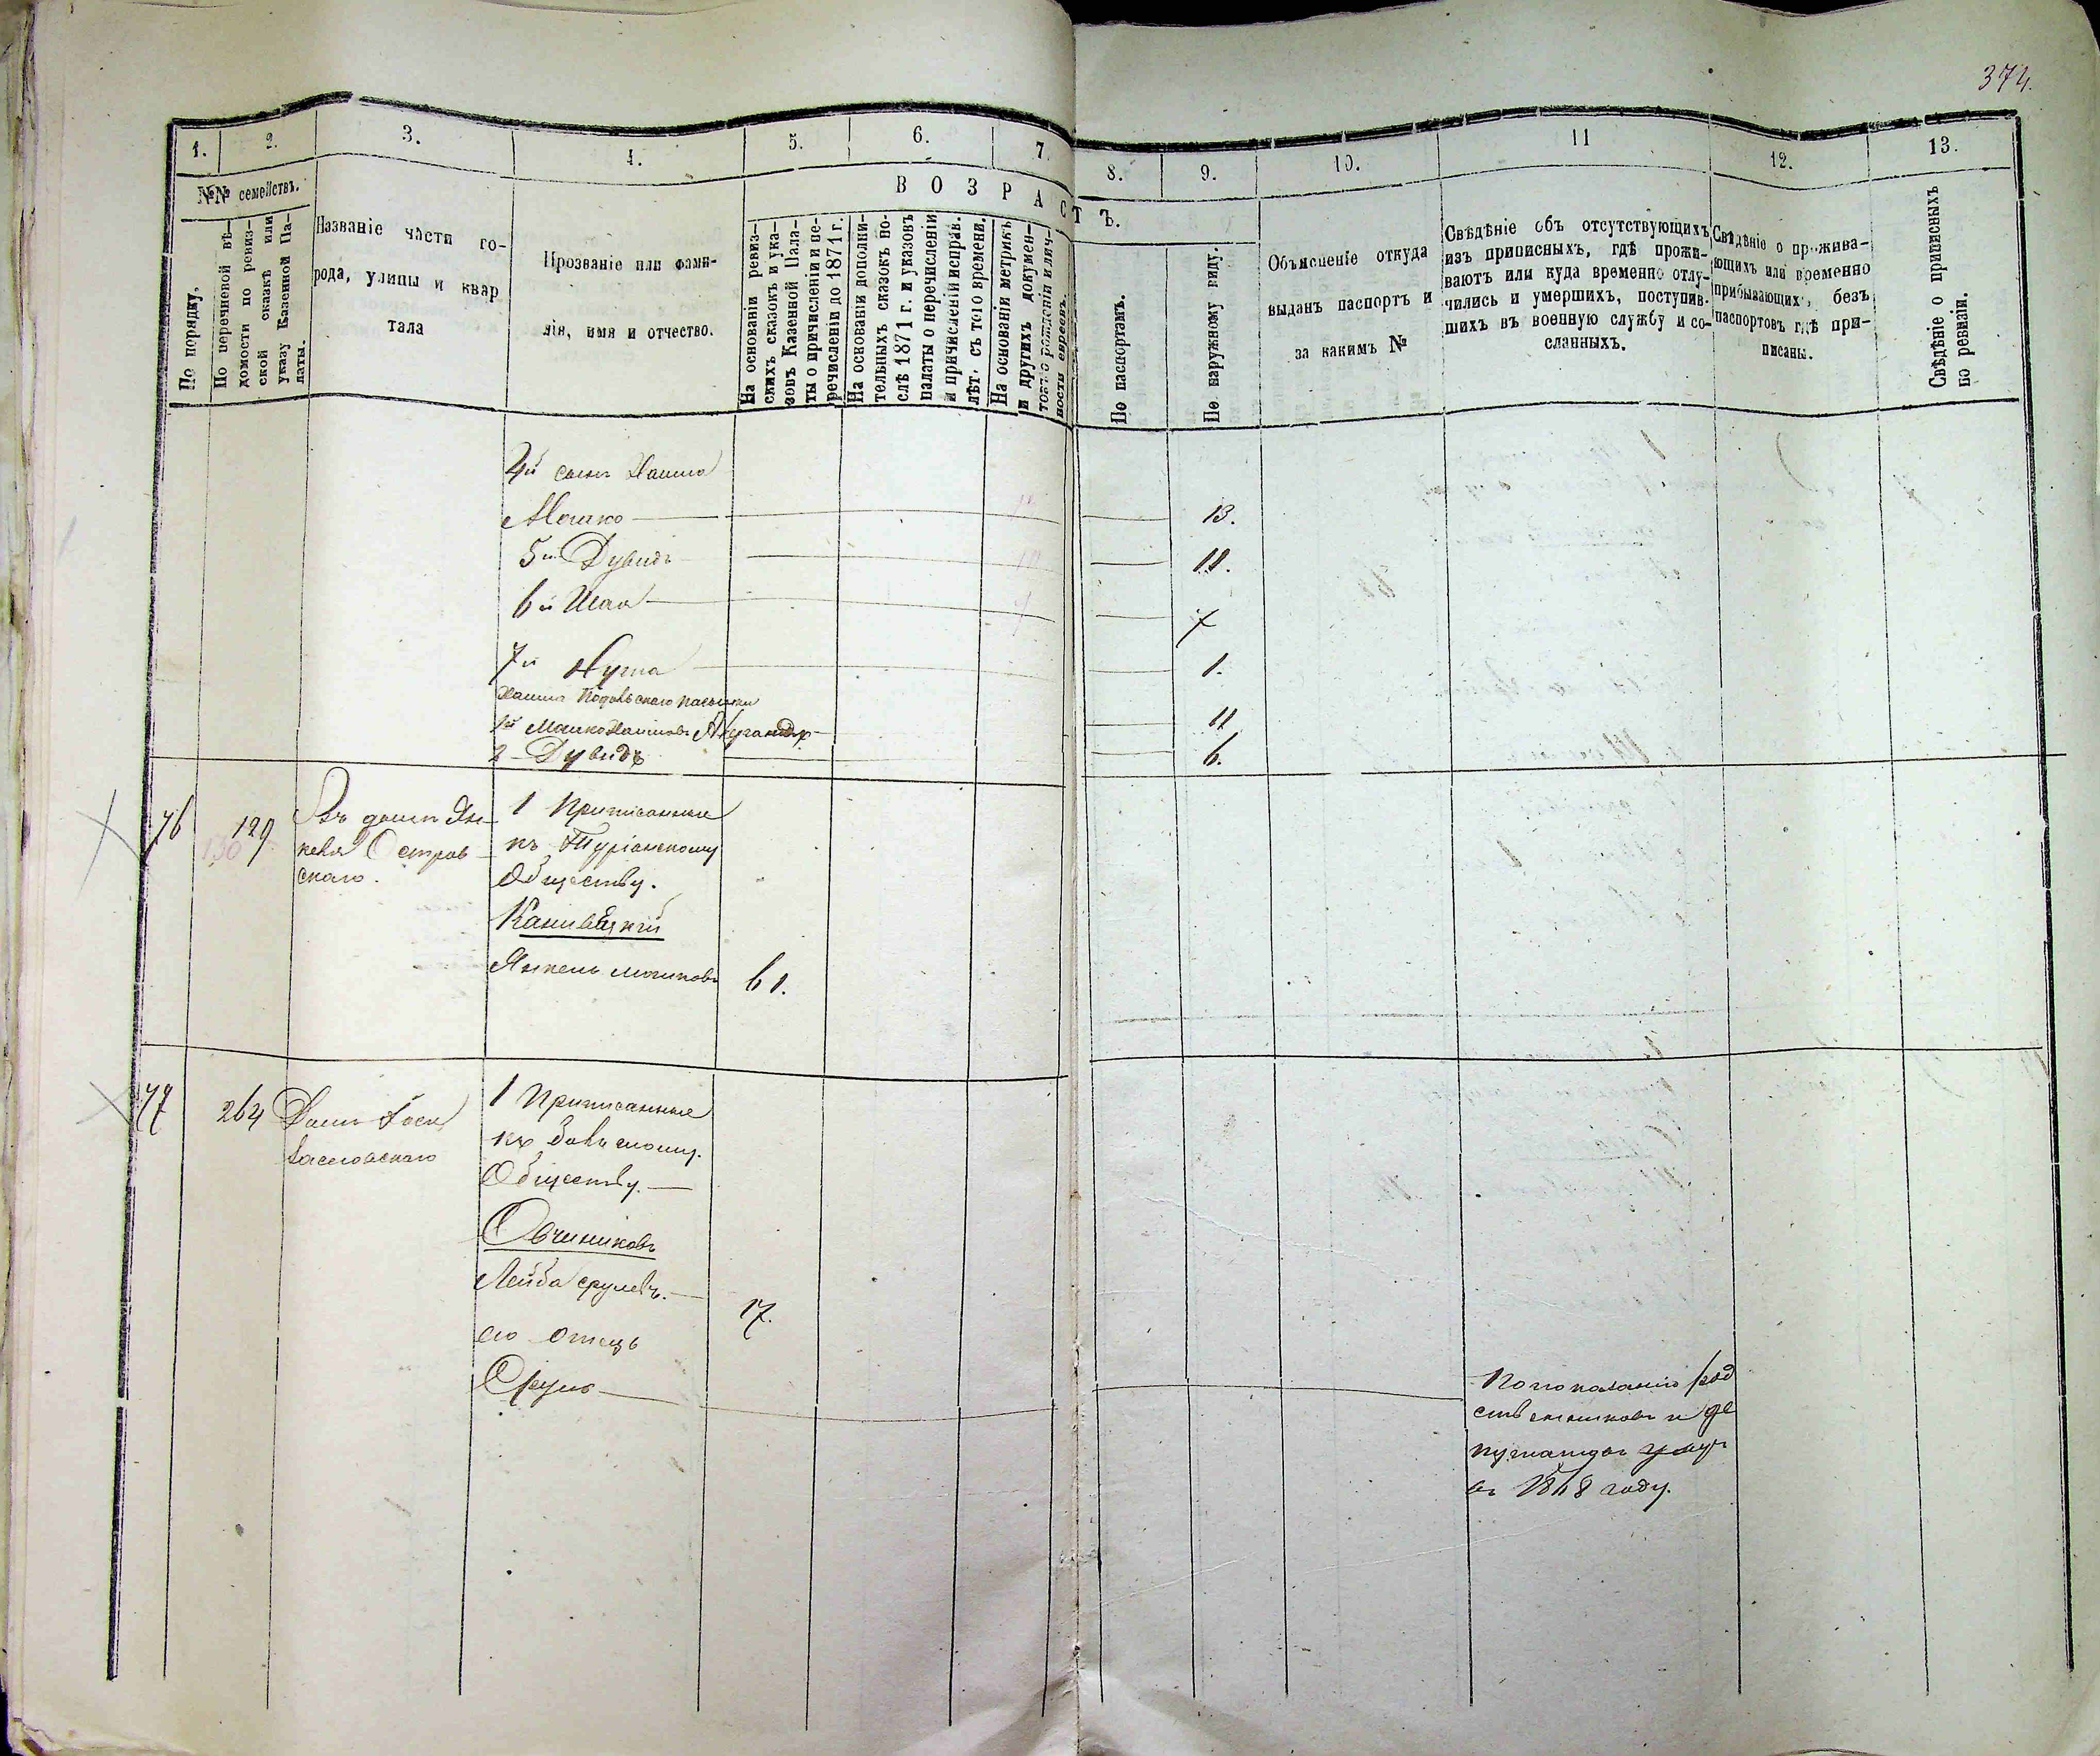 374.
1. 2. 3. 4. 5. 6. 7. 8. 9. 10. 11 12. 13.
№№ семействъ.
По порядку.
По перечневой вѣ-
домости по ревиз-
ской сказкѣ или
указу Казенной Па-
латы.
Названіе части го-
рода, улицы и квар
тала
Прозваніе или фами-
лія, имя и отчество.
ВОЗРАСТЪ.
На основаніи ревиз-
скихъ сказокъ и ука-
зовъ Казенной Пала-
ты о причисленіи и пе-
речисленіи до 1871 г.
На основаніи дополни-
тельныхъ сказокъ по-
слѣ 1871 г. и указовъ
палаты о перечисленіи
и причисленіи исправ.
лѣт. съ того времени.
На основаніи метрикъ
и других докумен-
товъ о рожденіи и лич-
ности евреевъ.
По паспортамъ.
По наружному виду.
Объясненіе откуда
выданъ паспортъ и
за какимъ №
Свѣдѣніе объ отсутствующихъ
изъ приписныхъ, гдѣ прожи-
ваютъ или куда временно отлу-
чились и умершихъ, поступив-
шихъ въ военную службу и со-
сланныхъ.
Свѣдѣніе о прожива-
ющихъ или временно
прибывающих, безъ
паспортовъ гдѣ при-
писаны.
Свѣдѣніе о приписныхъ
по ревизіи.
4й сынъ Хаима
Мошко 13.
5й Дувидъ 11.
6й Шая 7
7й Нута 1.
Хаима Подольскаго пасынки
1й Мошко Хаимовъ 11
2 Дувидъ 6.
76 129 130 Въ домѣ Ян-
келя Островскаго.
1 Приписанные
къ Туріанскому
Обществу.
Канивецкій
Янкель Мошковъ 61.
77 264 Домъ
1 Приписанные
къ
Обществу.
Овчинниковъ
Лейба Срулевъ. 17.
его отецъ
Сруль
По показанію род
ственниковъ и де
путатовъ умер
въ 1868 году.